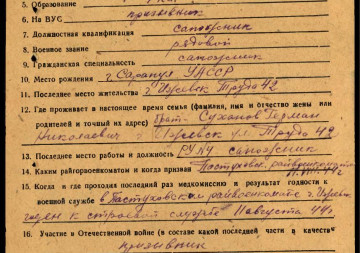 5. Образование
6. На ВУС призывник
7. Должностная квалификация сапожник
8. Военное звание рядовой
9. Гражданская специальность сапожник
10. Место рождения г. Сарапул УАССР
11. Последнее место жительства г. Ижевск Труда 42
12. Где проживает в настоящее время семья (фамилия, имя и отчество жены или
родителей и точный их адрес) брат Суханов Герман
Николаевич г. Ижевск ул. Труда 42
13. Последнее место работы и должность сапожник
14. Каким райгорвоенкоматом и когда призван Пастуховск. райвоенкоматом
15. Когда и где проходил последний раз медкомиссию и результат годности к
военной службе в Пастуховском райвоенкомате г. Ижевск
годен к строевой службе 11 августа 44 г.
16. Участие в Отечественной войне (в составе какой последней части в качестве
призывник